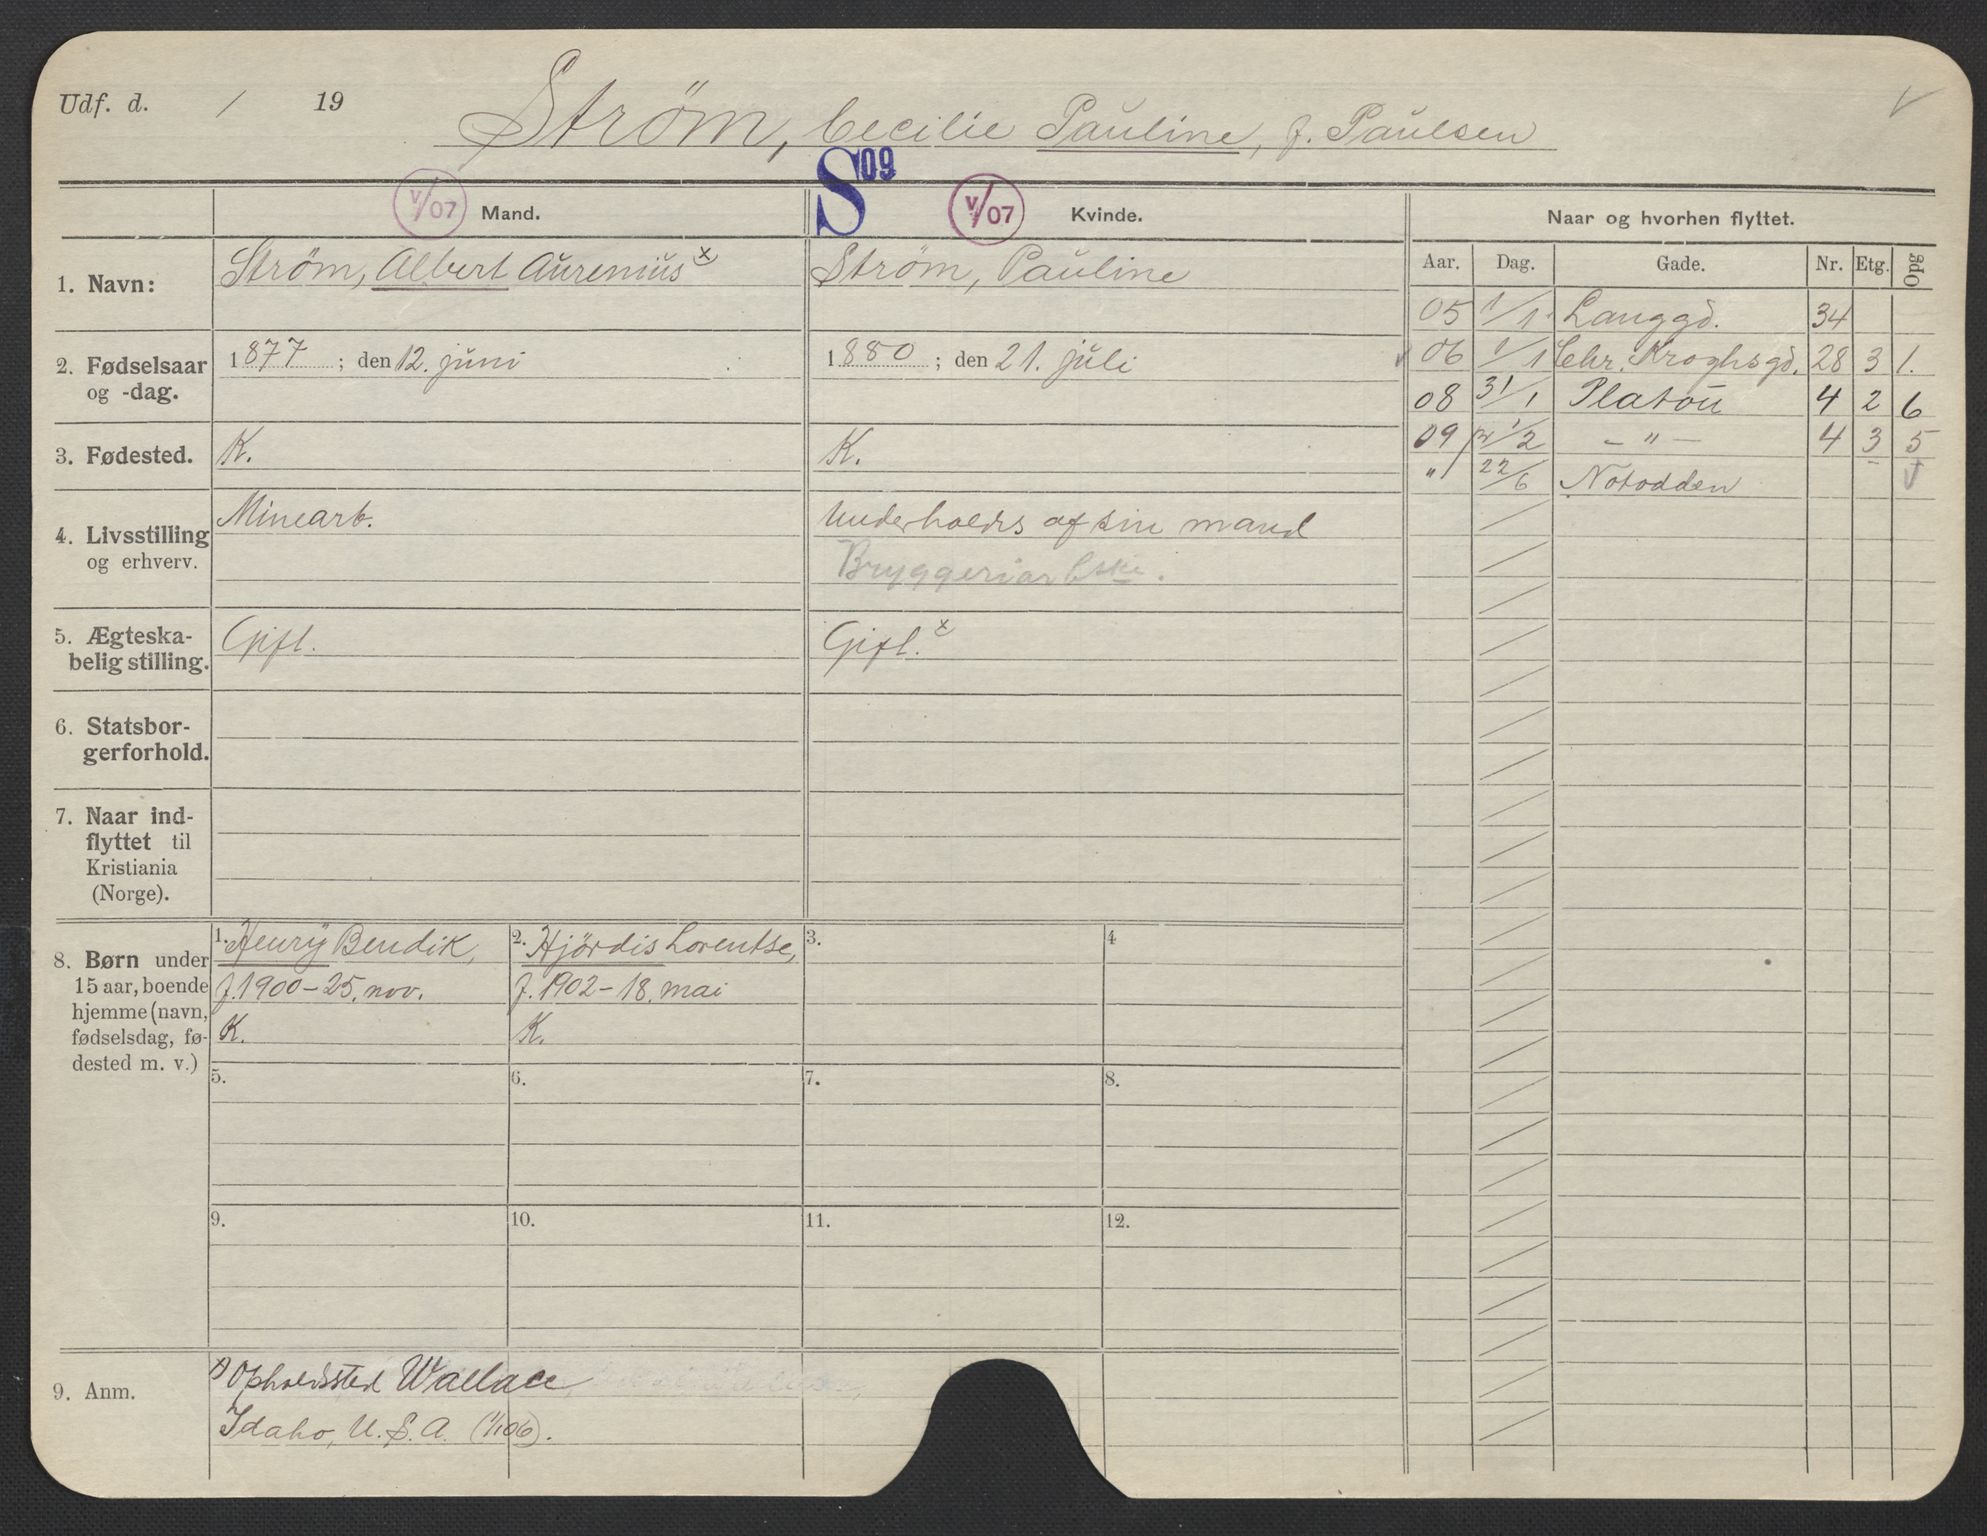 Udf. d. / 19
Strøm, Cecilie Pauline, f. Paulsen
V
V/07 Mand. S09 V/07 Kvinde. Naar og hvorhen flyttet.
Aar. Dag. Gade. Nr. Etg. Opg
1. Navn: Strøm, Albert Aurenius x Strøm, Pauline
2. Fødselsaar og -dag. 1877; den 12. juni 1880; den 21. juli
3. Fødested. K. K.
4. Livsstilling og erhverv. Minearb. Underholdes af sin mand
Bryggeriarbske.
5. Ægteska-
belig stilling. Gift. Gift. x
6. Statsbor-
gerforhold.
7. Naar ind-
flyttet til
Kristiania
(Norge).
05 1/1 Langgd. 34
06 1/1 Chr. Kroghsgd. 28 3 1.
08 31/1 Platou 4 2 6
09 1/2 – " – 4 3 5
" 22/6 Notodden
8. Børn under
15 aar, boende
hjemme (navn,
fødselsdag, fø-
dested m. v.)
1. Henry Bendik,
f. 1900 – 25. nov.
K.
2. Hjördis Lorentse,
f. 1902 – 18. mai
K.
3.
4
5.
6.
7.
8.
9.
10.
11.
12.
9. Anm.
x) Opholdssted Wallace
Idaho, U. S. A. (1/1 06).